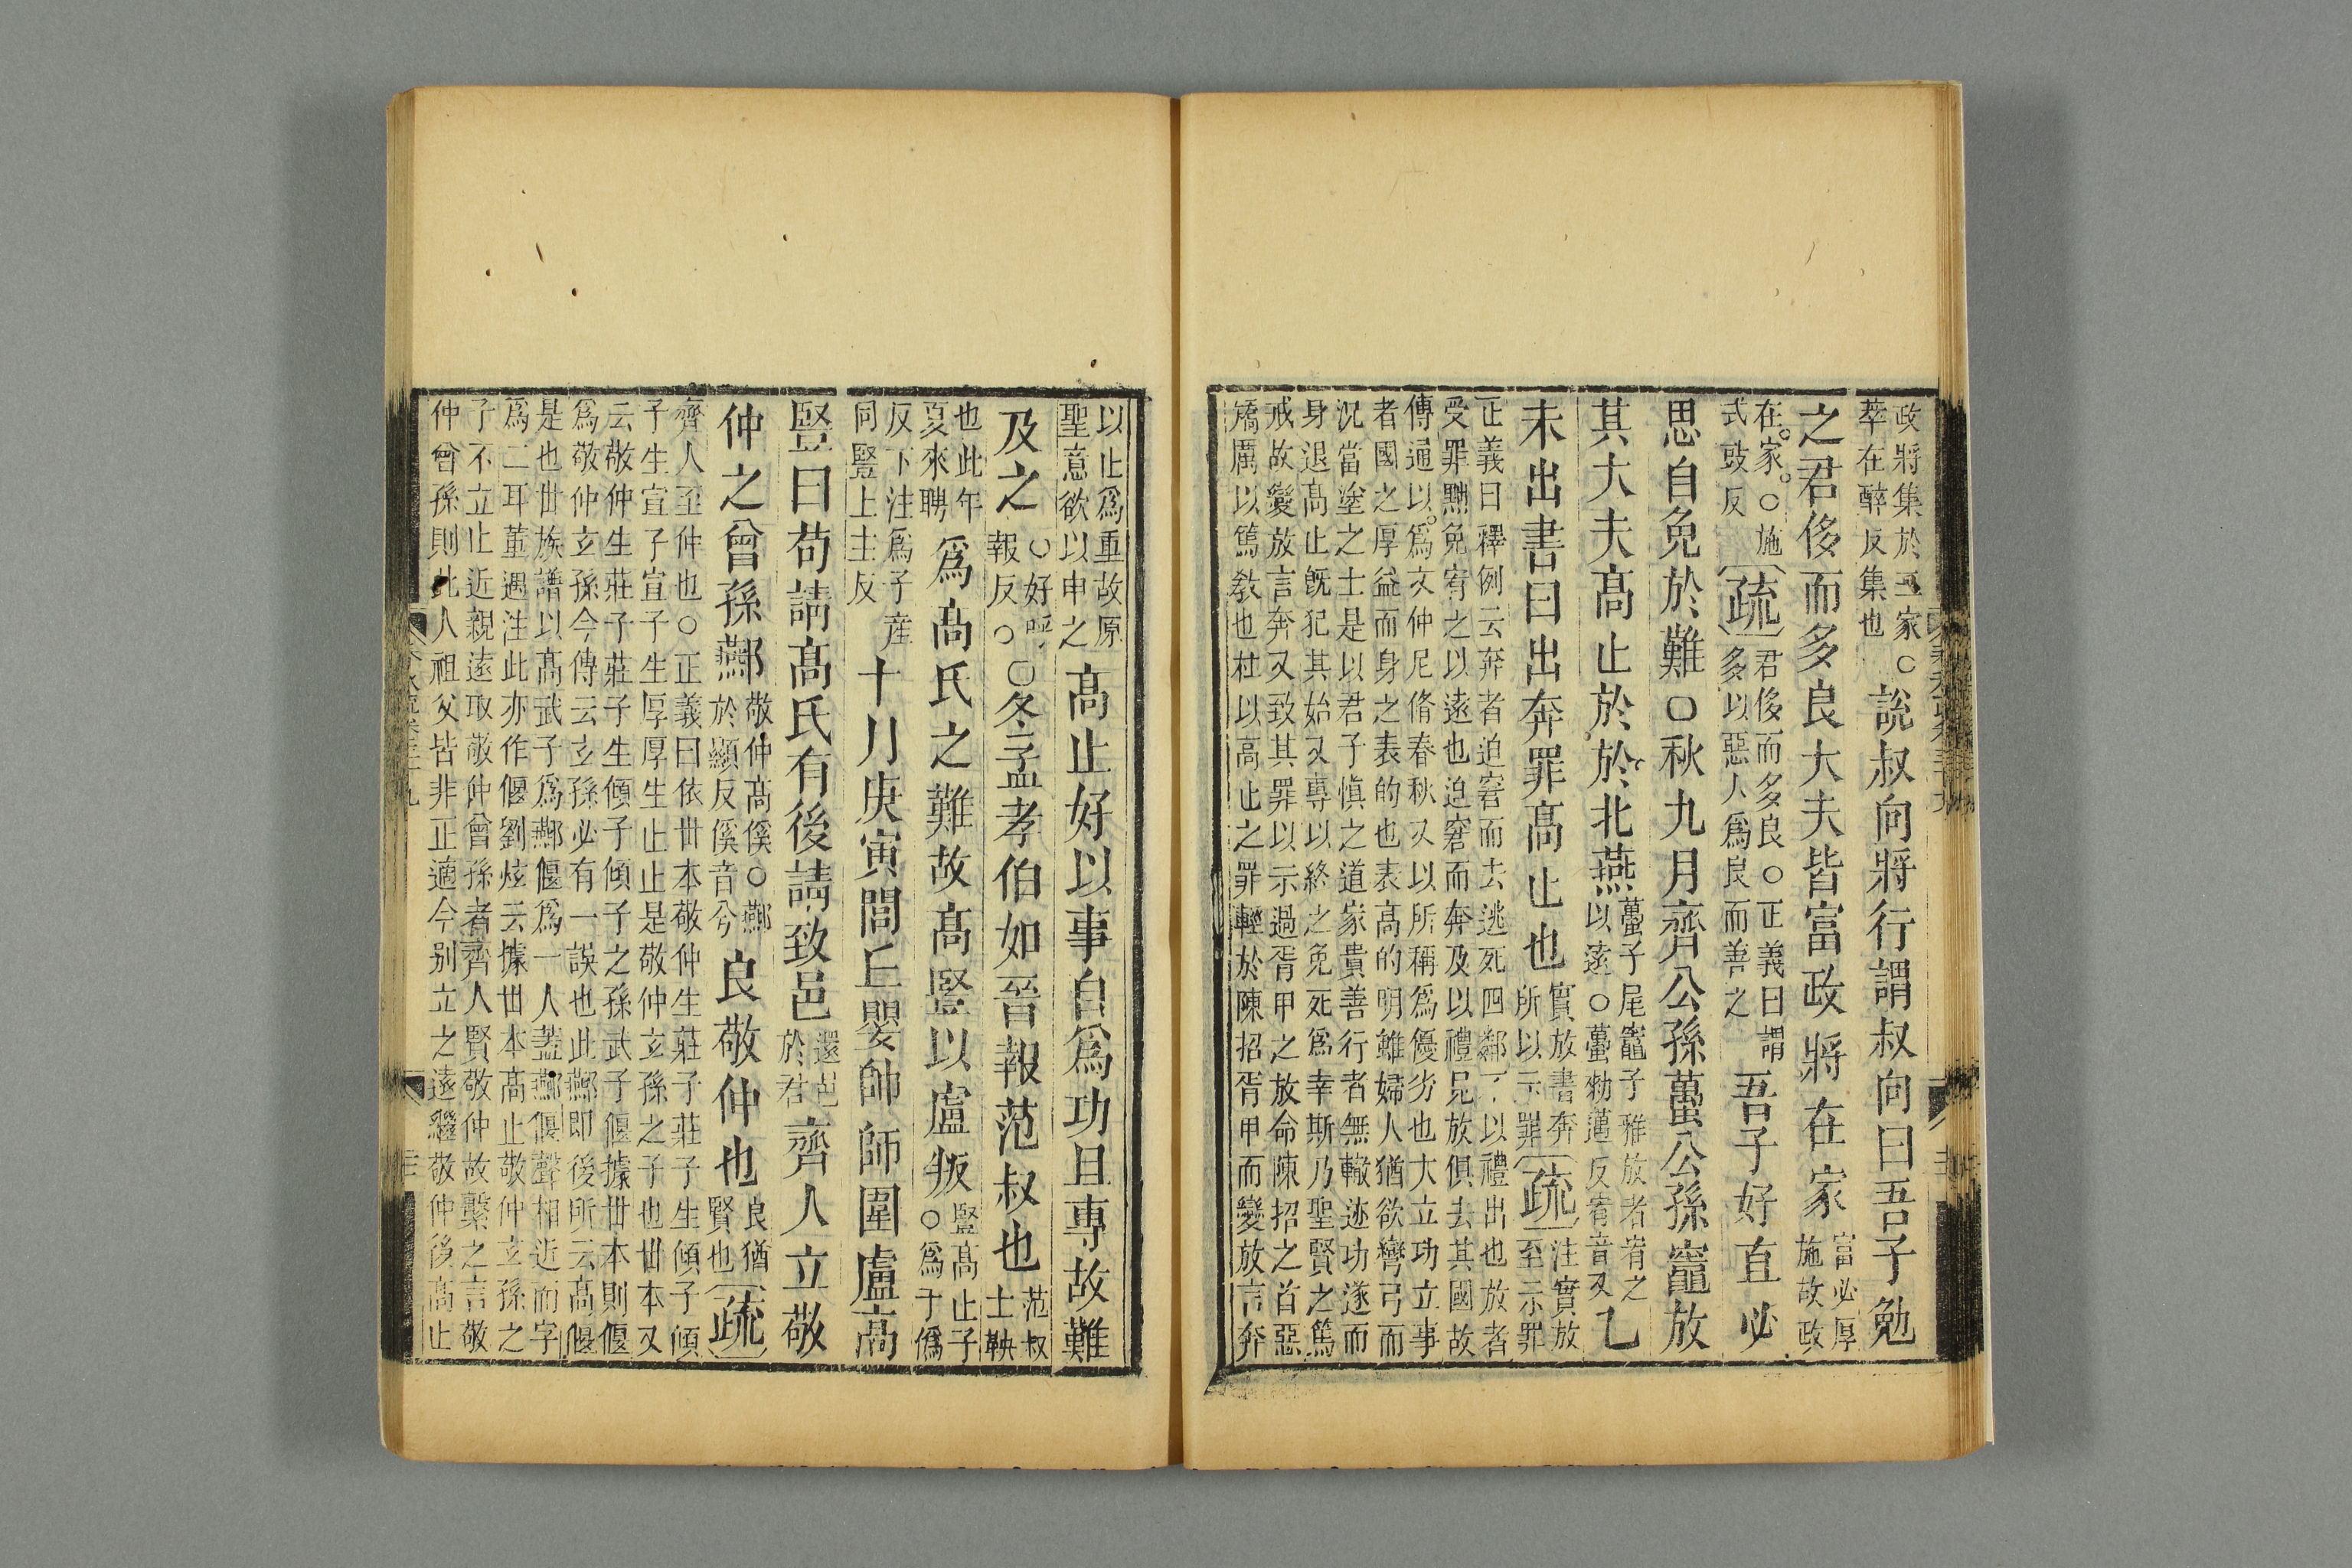 政將集於三家○萃在醉反集也說叔向將行謂叔向曰吾子勉
之君侈而多良大夫皆富政將在家富必厚施故政
在家○施式豉反疏君侈而多良○正義曰謂多以惡人爲良而善之吾子好直必
思自免於難○秋九月齊公孫蠆公孫竈放
其大夫高止於於北燕蠆子尾竈子雅放者宥之以遠○蠆勑邁反宥音又乙
未出書曰出奔罪高止也實放書奔所以示罪疏注實放至示罪
正義曰釋例云奔者迫窘而去逃死四鄰不以禮出也放者
受罪黜免宥之以遠也迫窘而奔及以禮見放俱去其國故
傳通以爲文仲尼脩春秋又以所稱爲優劣也大立功立事
者國之厚益而身之表的也表高的明雖婦人猶欲彎弓而
況當塗之士是以君子慎之道家貴善行者無轍迹功遂而
身退高止既犯其始又專以終之免死爲幸斯乃聖賢之篤
戒故變放言奔又致其罪以示過胥甲之放命陳招之首惡
矯厲以篤教也杜以高止之罪輕於陳招胥甲而變放言奔
以止爲重故原聖意欲以申之高止好以事自爲功且專故難
及之○好呼報反○○冬孟孝伯如晉報范叔也范叔士鞅
也此年夏來聘爲高氏之難故高豎以盧叛豎高止子○爲于僞
反下注爲子產同豎上主反十月庚寅閭丘嬰帥師圍盧高
豎曰苟請高氏有後請致邑還邑於君齊人立敬
仲之曾孫酀敬仲高傒○酀於顯反傒音兮良敬仲也良猶賢也疏
齊人至仲也○正義曰依世本敬仲生莊子莊子生傾子傾
子生宣子宣子生厚厚生止止是敬仲玄孫之子也世本又
云敬仲生莊子莊子生傾子傾子之孫武子偃據世本則偃
爲敬仲玄孫今傳云玄孫必有一誤也此酀即後所云高偃
是也世族譜以高武子爲酀偃爲一人蓋酀偃聲相近而字
爲二耳董遇注此亦作偃劉炫云據世本高止敬仲玄孫之
子不立止近親遠取敬仲曾孫者齊人賢敬仲故繫之言敬
仲曾孫則此人祖父皆非正適今別立之遠繼敬仲後高止